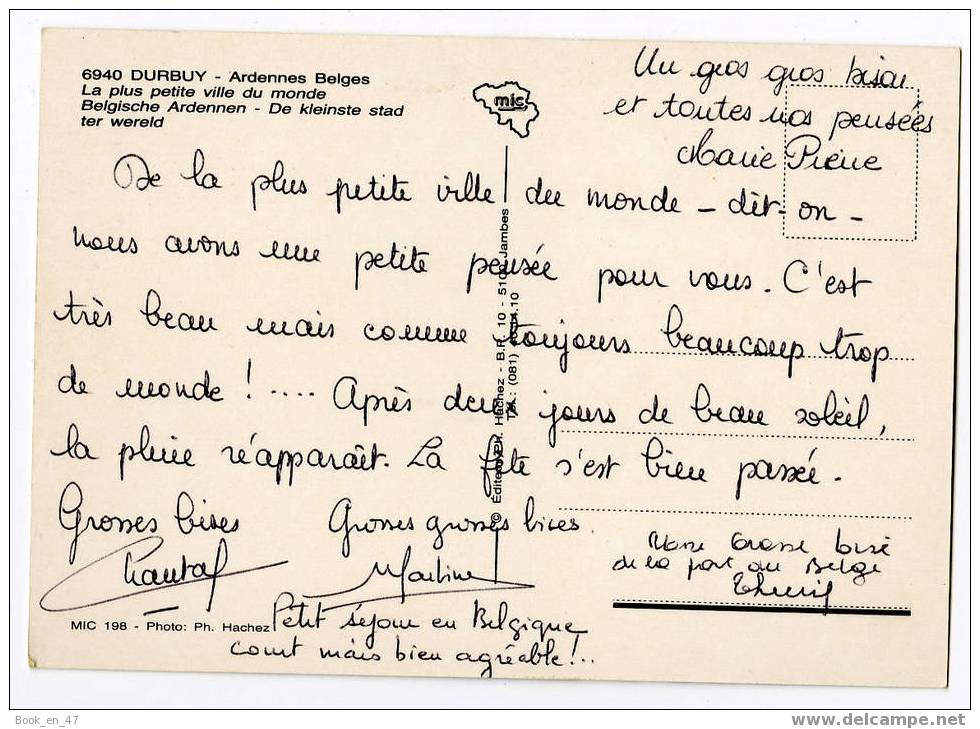 6940 DURBUY - Ardennes Belges
La plus petite ville du monde
Belgische Ardennen - De kleinste stad
ter wereld
mic
Un gros gros bisou
et toutes nos pensées
Marie Pierre
De la plus petite ville du monde - dit-on -
nous avons une petite pensée pour vous. C'est
très beau mais comme toujours beaucoup trop
de monde ! .... Après deux jours de beau soleil,
la pluie réapparaît. La fête s'est bien passée.
Grosses bises
Chantal
Grosses grosses bises.
Martine
Grosse bise
de la part du Belge
Thierry
Petit séjour en Belgique
court mais bien agréable !..
© Editeur Ph. Hachez - B.P. 10 - 5100 Jambes
Tél.: (081) 10
MIC 198 - Photo: Ph. Hachez
Book_en_47
www.delcampe.net